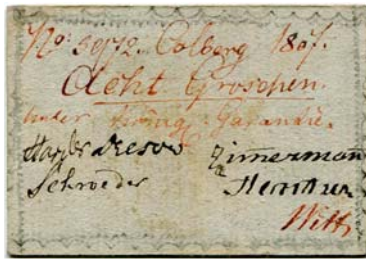 No: 5972. Colberg 1807.
Acht Groschen.
Unter König Garandie.
Dresow Zimermann
Schroeder
Witt